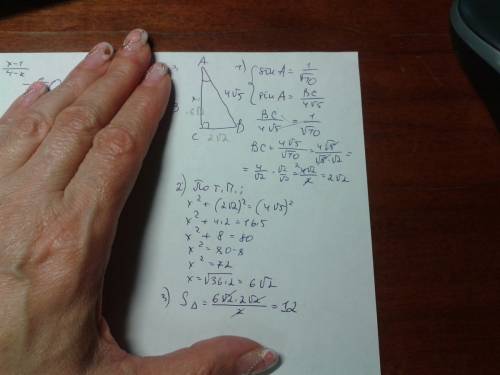 x-1
A
4√5
x
6√2
C 2√2 B
1) { sin A = 1/√10
sin A = BC/4√5
BC/4√5 = 1/√10
BC = 4√5/√10 = 4√5/√5·√2 =
= 4/√2 · √2/√2 = 4√2/2 = 2√2
2) По т. П.;
x² + (2√2)² = (4√5)²
x² + 4·2 = 16·5
x² + 8 = 80
x² = 80-8
x² = 72
x = √36·2 = 6√2
3) S△ = 6√2·2√2/2 = 12